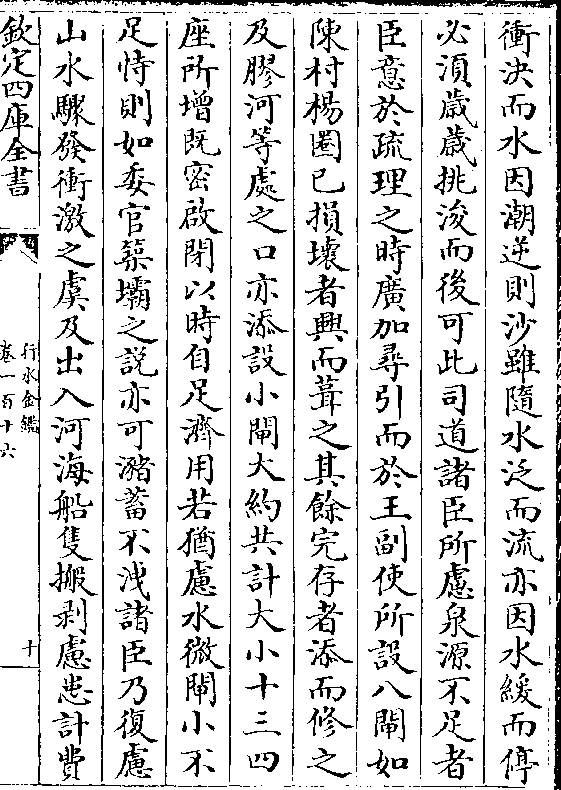 衝决而水因潮逆則沙雖隨水泛而流亦因水緩而停
必湏歲歲挑浚而後可此司道諸臣所慮泉源不足者
臣意於疏理之時廣加尋引而於王副使所設八閘如
陳村楊圈已損壞者興而葺之其餘完存者添而修之
及膠河等處之口亦添設小閘大約共計大小十三四
座所增既密啟閉以時自足濟用若猶慮水微閘小不
足恃則如委官築壩之説亦可瀦蓄不洩諸臣乃復慮
山水驟發衝激之虞及出入河海船隻搬剥慮患計費
欽定四庫全書
行水金鑑
卷一百十六
十